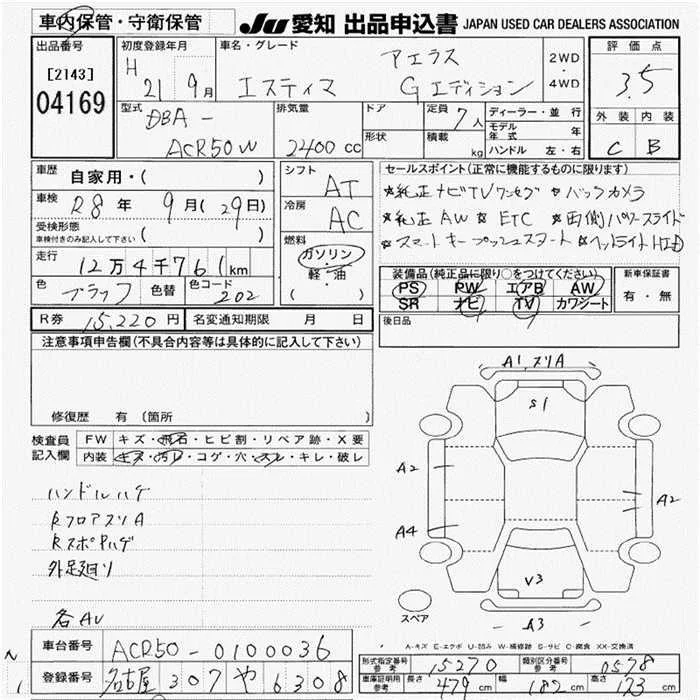 車内保管・守衛保管
JU 愛知 出品申込書 JAPAN USED CAR DEALERS ASSOCIATION
出品番号 [2143] 04169
初度登録年月 H 21年 9月
車名・グレード エスティマ アエラス Gエディション
2WD・4WD
評価点 3.5
外装 C 内装 B
型式 DBA-ACR50W
排気量 2400cc
ドア 形状
定員 7人
積載 kg
ディーラー・並行
モデル年式 年
ハンドル 左・右
車歴 自家用・( )
車検 R8年 9月(29日)
受検形態 車検付きのみ記入して下さい ( )
走行 12万4千761km
色 ブラック 色替 色コード 202
シフト AT
冷房 AC
燃料 ガソリン・軽・油 ( )
セールスポイント(正常に機能するものに限ります)
☆純正ナビTVワンセグ ☆バックカメラ
☆純正AW ☆ETC ☆両側パワースライド
☆スマートキープッシュスタート ☆ヘッドライトHID
装備品(純正品に限り○をつけてください)
PS PW エアB AW
SR ナビ TV カワシート
新車保証書 有・無
R券 15,220円 名変通知期限 月 日
後日品
注意事項申告欄(不具合内容等は具体的に記入して下さい)
修復歴 有 (箇所 )
検査員記入欄
FW キズ・飛石・ヒビ割・リペア跡・X要
内装 キズ・汚レ・コゲ・穴・スレ・キレ・破レ
ハンドルハゲ
RフロアスリA
RスポPハゲ
外足廻り
各AU
A1,スリA
S1
A2
A2
A4
V3
A3
スペア
A-キズ E-エクボ U-凹み W-補修跡 S-サビ C-腐食 XX-交換済
車台番号 ACR50-0100036
登録番号 名古屋 307 や 6308
形式指定番号 参考 15270 類別区分番号 参考 0578
車庫証明用 参考 長さ 479cm 幅 182cm 高さ 173cm